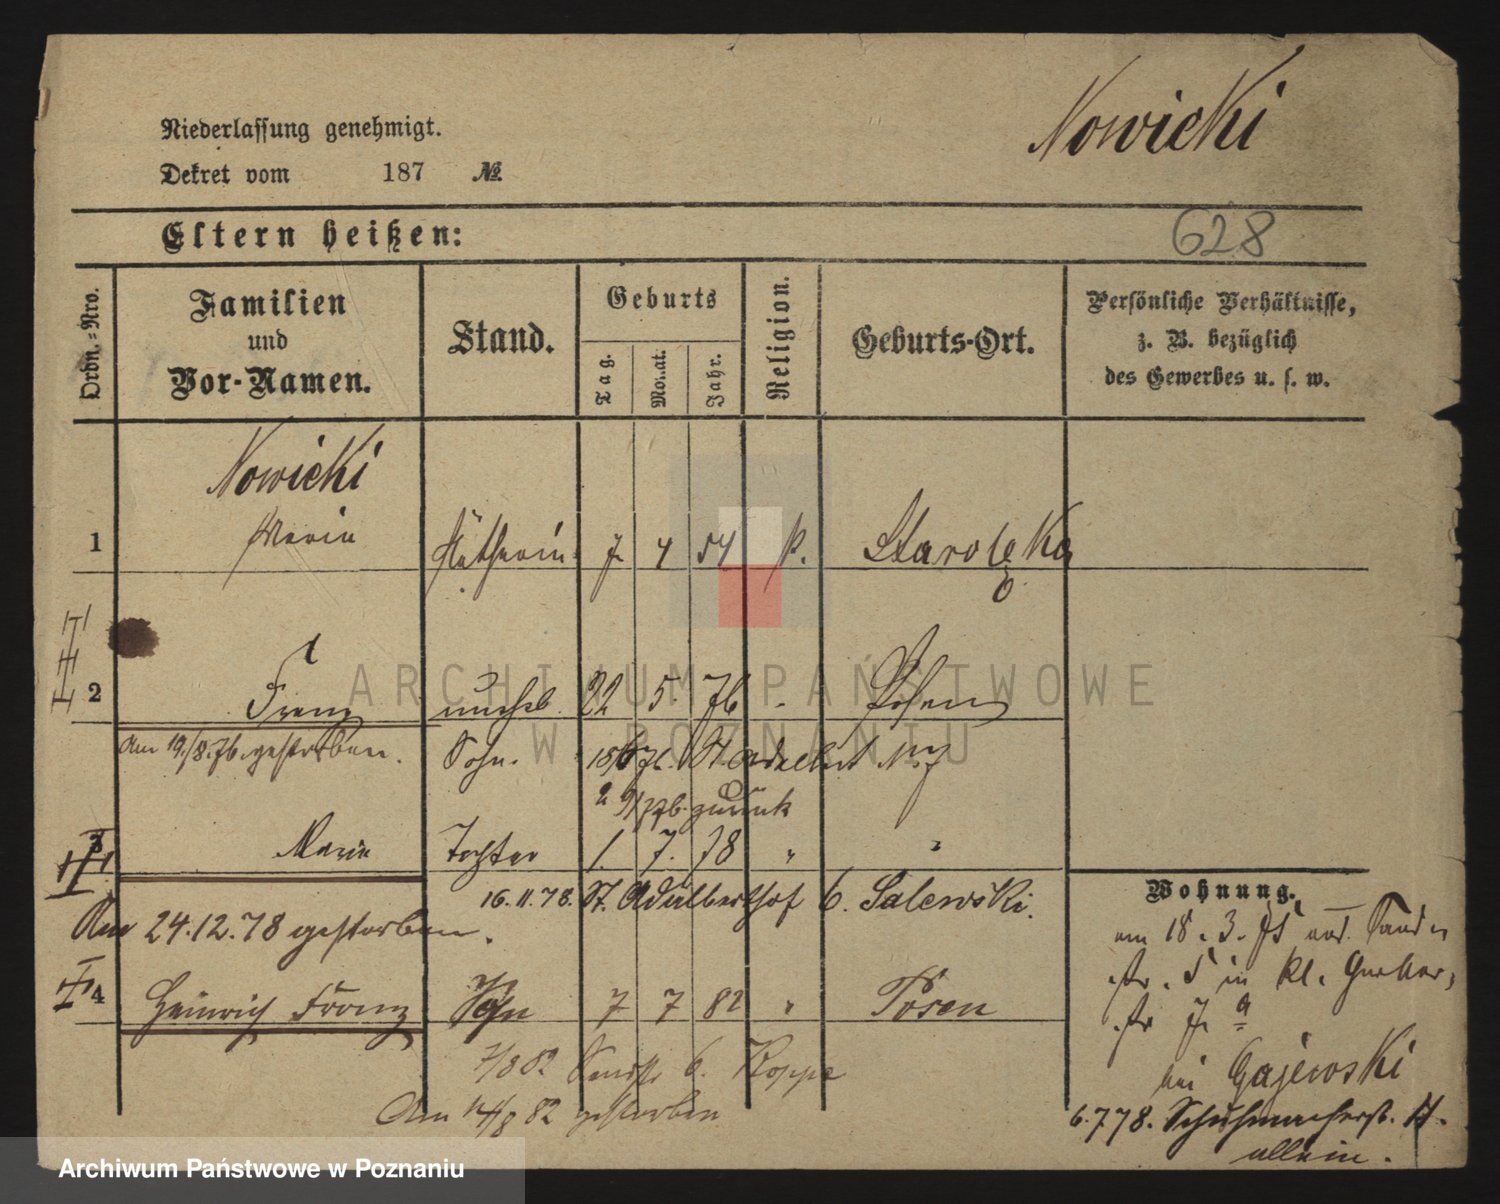 Nowicki
Niederlassung genehmigt.
Dekret vom 187 №
628
Eltern heißen:
Ordn.-Nro.
Familien
und
Vor-Namen.
Stand.
Geburts
Tag.
Monat.
Jahr.
Religion.
Geburts-Ort.
Persönliche Verhältnisse,
z. B. bezüglich
des Gewerbes u. s. w.
Nowicki
1 Maria Nätherin 7 4 54 k. Starolęka
2 Franz unehel. 22 5. 76 Posen
Am 19/8.76. gestorben. Sohn. St Adalbert
zurück
3 Marie Tochter 1. 7. 78 "
16.11.78. St. Adalberthof 6. Salewski.
Am 24.12.78 gestorben.
4 Heinrich Franz Sohn 7 7 82 " Posen
7/8 82 6. Koppe
Am 82 gestorben
Wohnung.
am 18. 3. 75
str. 5 in kl. Gerber-
str 7 a
bei Gajewski
6.7.78. Schuhmacherst. 17.
allein.
ARCHIWUM PAŃSTWOWE
W POZNANIU
Archiwum Państwowe w Poznaniu